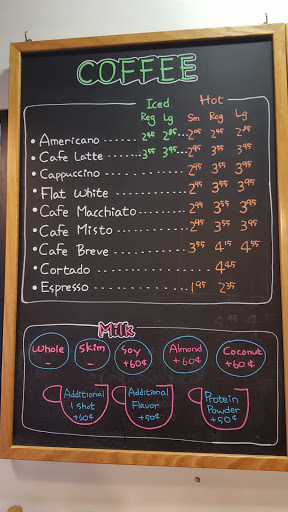 COFFEE
Iced Hot
Reg Lg Sm Reg Lg
• Americano ...... 2.45 2.85 2.05 2.45 2.85
• Cafe Latte ...... 3.55 3.95 2.95 3.55 3.95
• Cappuccino ...... 2.95 3.55 3.95
• Flat White ...... 2.95 3.55 3.95
• Cafe Macchiato ...... 2.95 3.55 3.95
• Cafe Misto ...... 2.95 3.55 3.95
• Cafe Breve ...... 3.55 4.15 4.55
• Cortado ...... 4.45
• Espresso ...... 1.95 2.35
Milk
Whole
–
Skim
–
Soy
+60¢
Almond
+60¢
Coconut
+60¢
Additional
1 shot
+60¢
Additional
Flavor
+50¢
Protein
Powder
+50¢